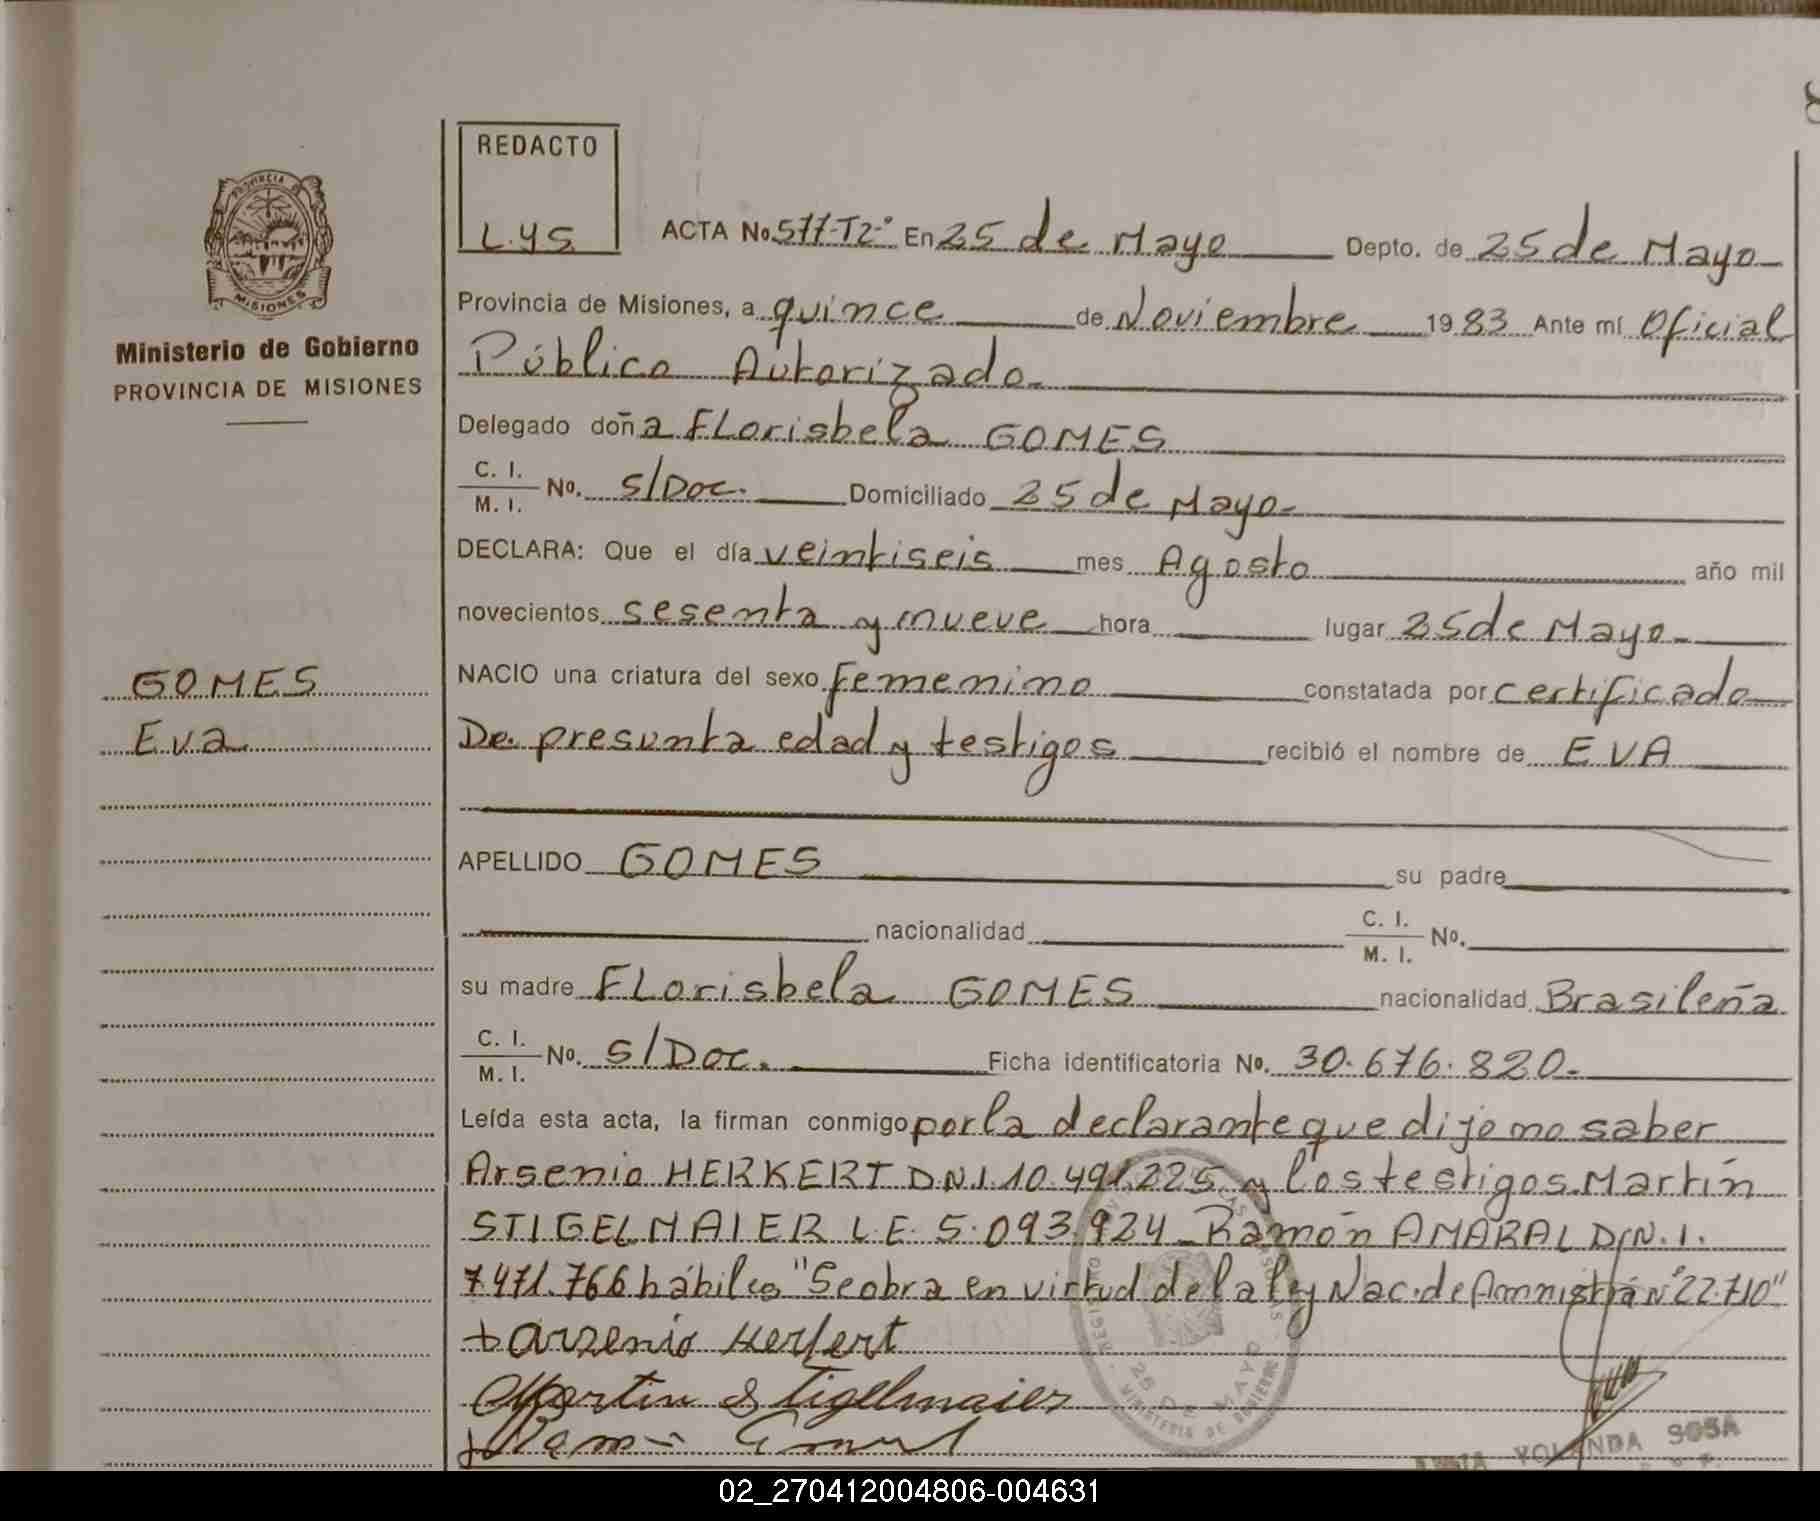 REDACTO
L.y.S.
PROVINCIA
MISIONES
Ministerio de Gobierno
PROVINCIA DE MISIONES
ACTA No. 577-T2-° En 25 de Mayo Depto. de 25 de Mayo
Provincia de Misiones, a quince de Noviembre 1983 Ante mí Oficial
Público Autorizado.
Delegado doña FLorisbela GOMES
C. I. / M. I. No. S/Doc. Domiciliado 25 de Mayo.
DECLARA: Que el día veintiseis mes Agosto año mil
novecientos sesenta y nueve hora lugar 25 de Mayo
NACIO una criatura del sexo femenino constatada por certificado
De presunta edad y testigos recibió el nombre de EVA
GOMES
Eva
APELLIDO GOMES su padre
nacionalidad C. I. / M. I. No.
su madre FLorisbela GOMES nacionalidad Brasileña
C. I. / M. I. No. S/Doc. Ficha identificatoria No. 30.676.820.
Leída esta acta, la firman conmigo por la declarante que dijo no saber
Arsenio HERKERT D.N.I. 10.491.225 y los testigos Martín
STIGELMAIER L.E. 5.093.924 Ramón AMARAL D.N.I.
7.471.766 hábiles "Se obra en virtud de la ley Nac. de Amnistía N° 22.710"
arsenio Herkert
Martin Stigelmaier
25 DE MAYO
MINISTERIO DE GOBIERNO
YOLANDA SOSA
02_270412004806-004631